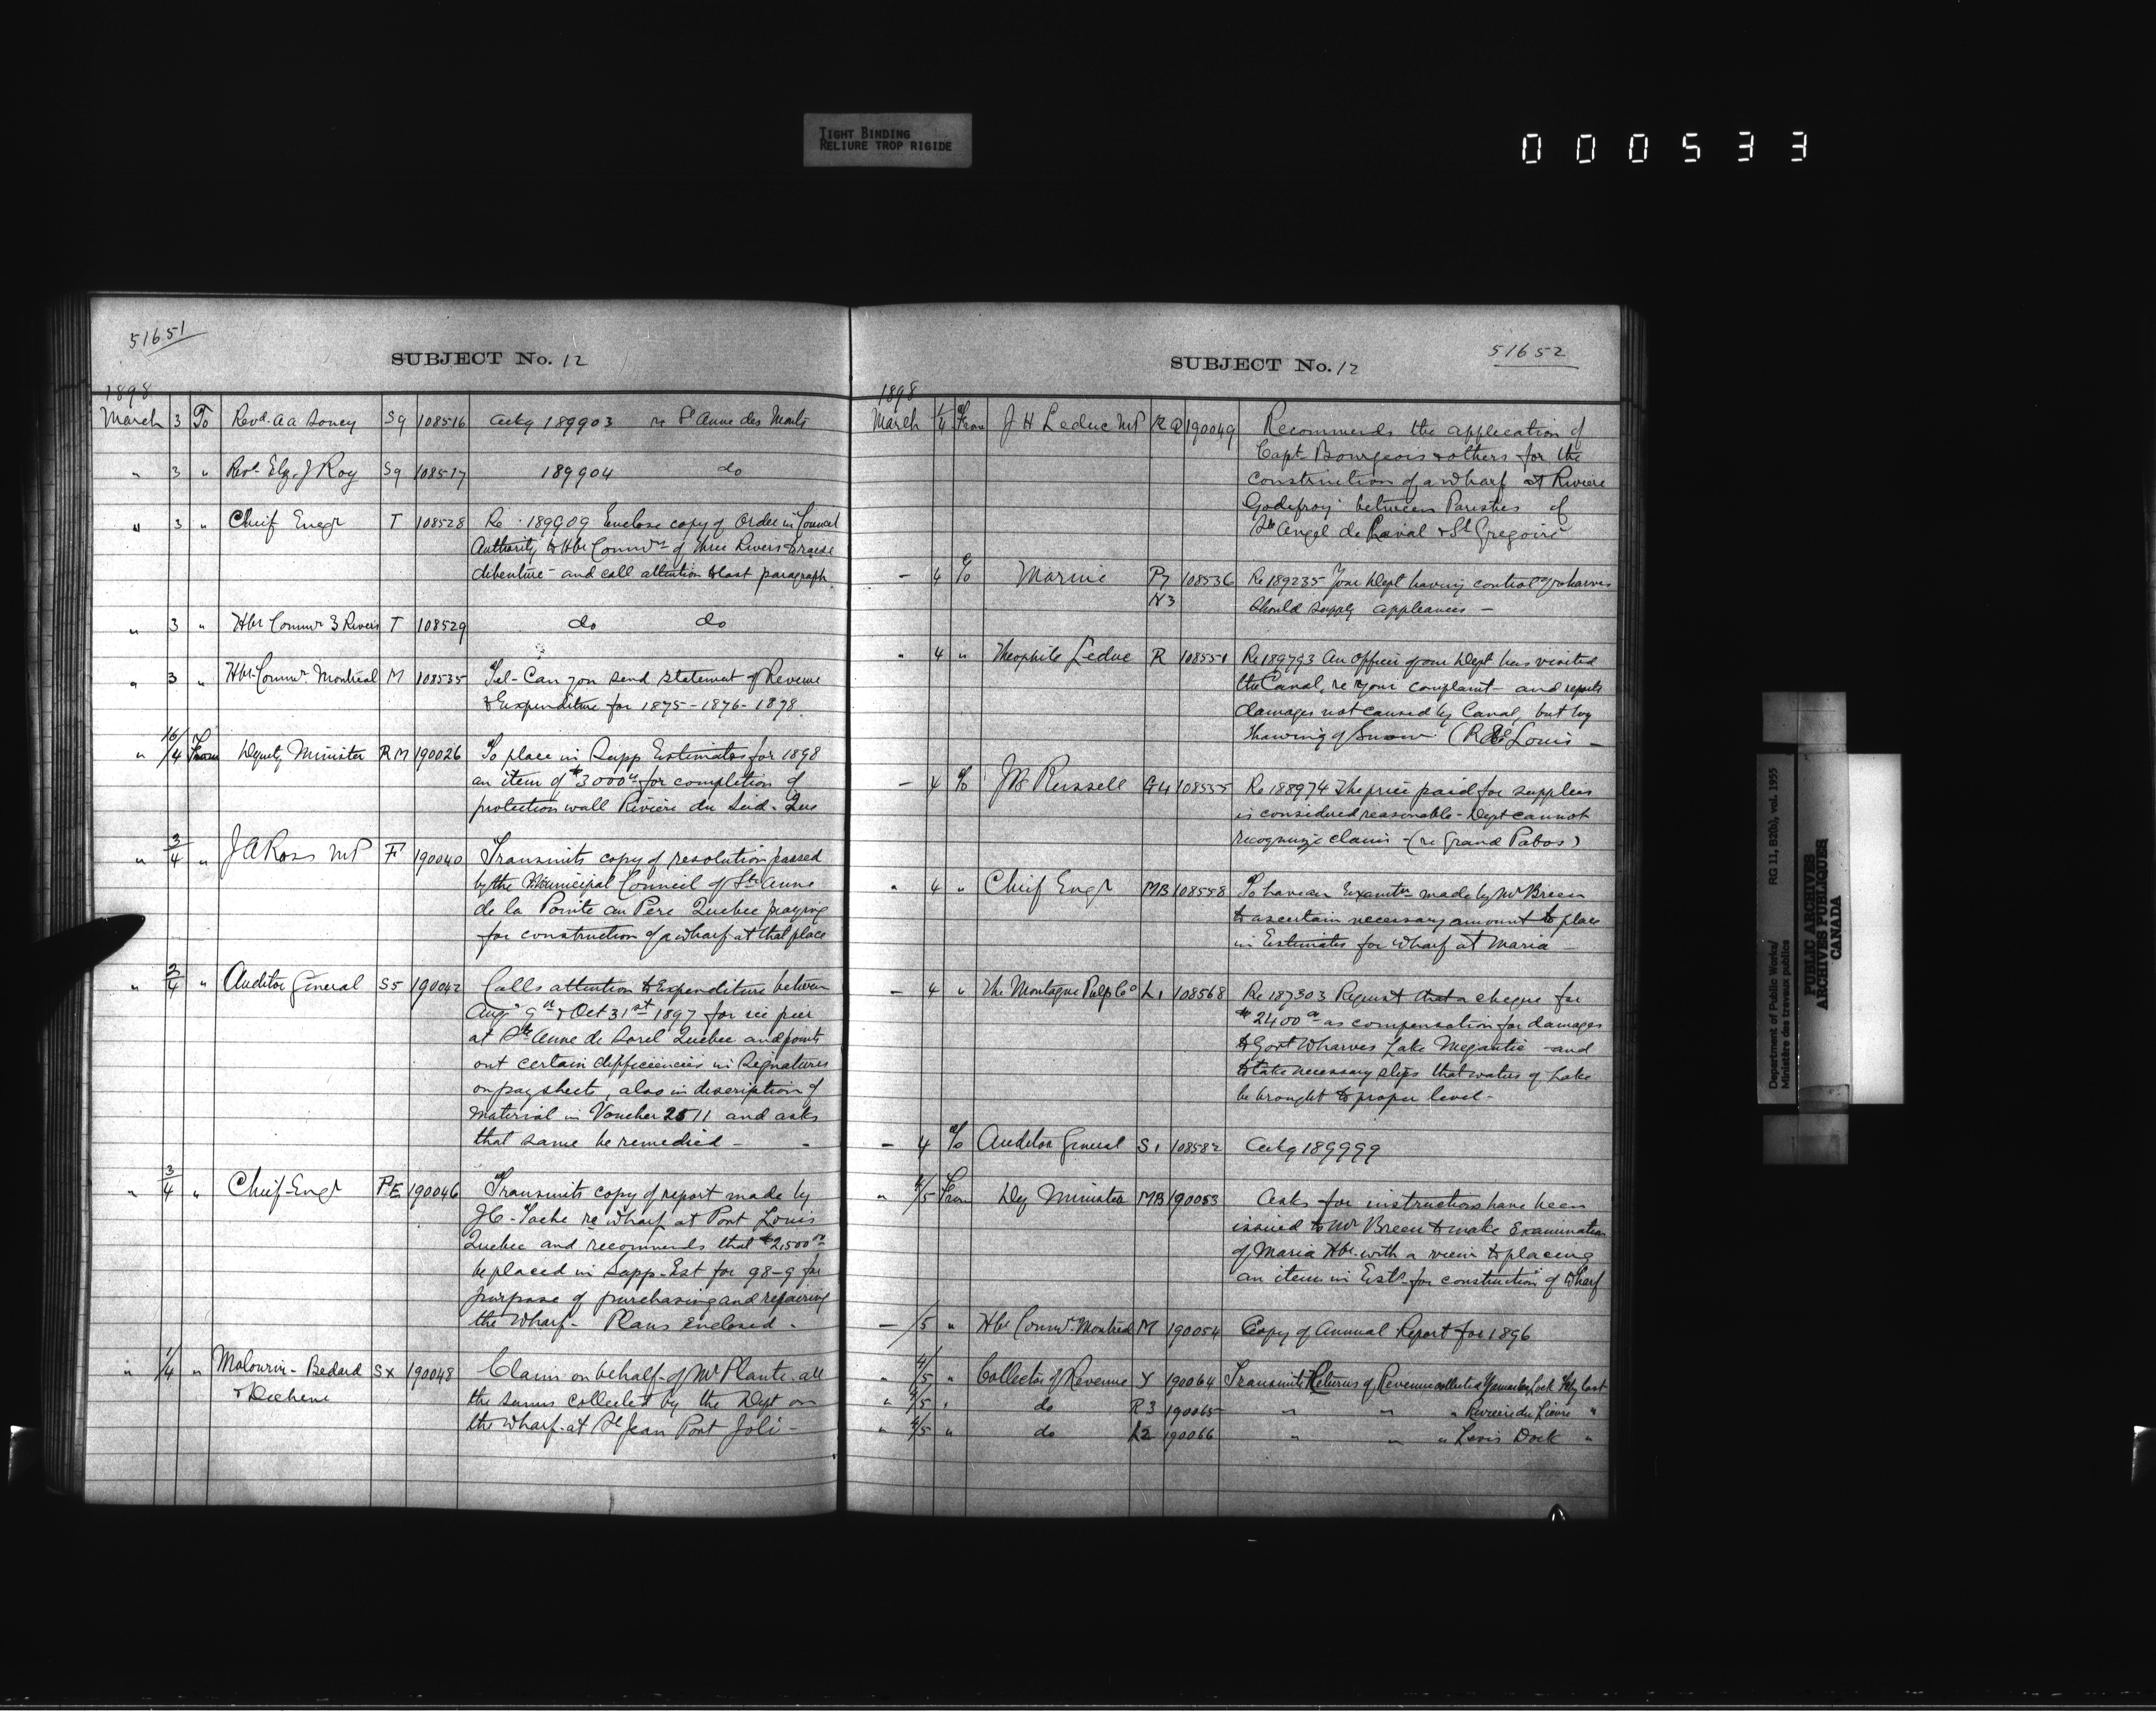 TIGHT BINDING
RELIURE TROP RIGIDE
000533
51651
SUBJECT No. 12
1898
March 3 To Revd. A A Soucy S9 108516 Ackg 189903 re St Anne des Monts
" 3 " Revd. Elz. J Roy S9 108517 189904 do
" 3 " Chief Engr T 108528 Re 189909 Enclose copy of Order in Council
Authority to Hbr Commrs of Three Rivers to raise
debenture - and call attention to last paragraph
" 3 " Hbr Commrs 3 Rivers T 108529 do do
" 3 " Hbr Commrs Montreal M 108535 Tel - Can you send statement of Revenue
& Expenditure for 1875 - 1876 - 1878
" 16/4 From Deputy Minister RM 190026 To place in Supp Estimates for 1898
an item of $3000 00 for completion of
protection wall Riviere du Sud - Que
" 3/4 " J A Ross MP F 190040 Transmits copy of resolution passed
by the Municipal Council of Ste Anne
de la Pointe au Pere Quebec praying
for construction of a wharf at that place
" 2/4 " Auditor General S5 190042 Calls attention to Expenditure between
Aug 9th & Oct 31st 1897 for ice pier
at Ste Anne de Sorel Quebec and points
out certain defficiencies in Signatures
on pay sheets, also in description of
material in Voucher 2511 and asks
that same be remedied -
" 3/4 " Chief Engr PE 190046 Transmits copy of report made by
J C - Tache re wharf at Port Louis
Quebec and recommends that $2,500 00
be placed in Supp - Est for 98-9 for
purpose of purchasing and repairing
the wharf - Plans Enclosed -
" 1/4 " Malouin - Bedard SX 190048 Claim on behalf of Mr Plante all
& Dechene the sums collected by the Dept on
the wharf at St Jean Port Joli -
51652
SUBJECT No. 12
1898
March 1/4 From J H Leduc MP RQ 190049 Recommends the application of
Capt Bourgeois & others for the
construction of a wharf at Riviere
Godefroy between Parishes of
Ste Angel de Laval & St Gregoire
- 4 To Marine P7 108536 Re 189235 Your Dept having control of wharves
N3 should supply appliances -
" 4 " Theophile Leduc R 108551 Re 189793 An officer of our Dept has visited
the Canal, re your complaint - and reports
damages not caused by Canal, but by
thawing of Snow (R St Louis -
- 4 To J W Russell G4 108555 Re 188974 The price paid for supplies
is considered reasonable - Dept cannot
recognize claim - (re Grand Pabos)
" 4 " Chief Engr MB 108558 To have an Examtn made by Mr Breen
to ascertain necessary amount to place
in Estimates for wharf at Maria -
- 4 " The Montague Pulp Co L1 108568 Re 187303 Request that a cheque for
$2400 00 as compensation for damages
to Govt Wharves Lake Megantic - and
to take necessary steps that waters of Lake
be brought to proper level -
- 4 To Auditor General S1 108582 Ackg 189999
" 4/5 From Dy Minister MB 190053 Asks for instructions have been
issued to Mr Breen to make Examination
of Maria Hbr. with a view to placing
an item in Ests for construction of Wharf
- /5 " Hbr Commrs Montreal M 190054 Copy of Annual Report for 1896
" 4/5 " Collector of Revenue Y 190064 Transmits Returns of Revenue collected Yamaska Lock Feby last
" 4/5 " do R3 190065 " " " Riviere du Lievre "
" 4/5 " do L2 190066 " " " Levis Dock "
Department of Public Works/
Ministère des travaux publics
RG 11, B2(b), vol. 1955
PUBLIC ARCHIVES
ARCHIVES PUBLIQUES
CANADA